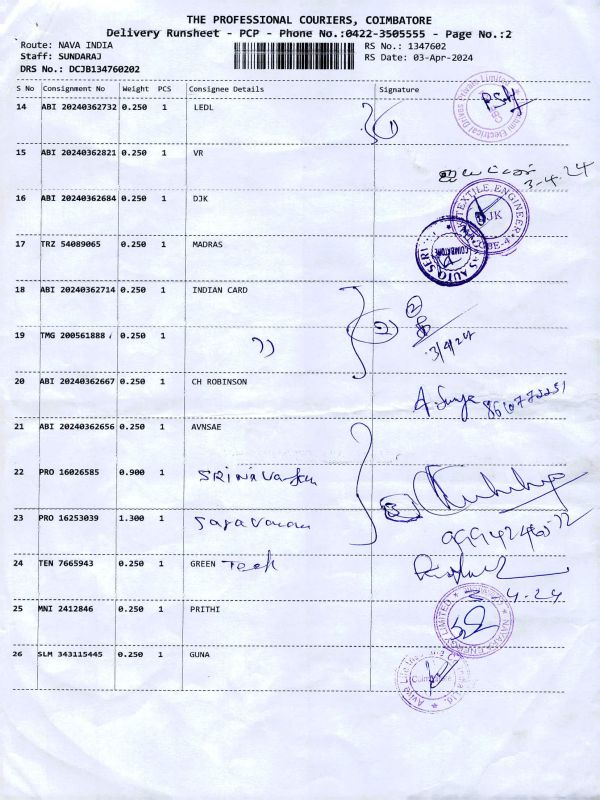 THE PROFESSIONAL COURIERS, COIMBATORE
Delivery Runsheet - PCP - Phone No.:0422-3505555 - Page No.:2
Route: NAVA INDIA RS No.: 1347602
Staff: SUNDARAJ RS Date: 03-Apr-2024
DRS No.: DCJB134760202
S No Consignment No Weight PCS Consignee Details Signature
14 ABI 20240362732 0.250 1 LEDL
15 ABI 20240362821 0.250 1 VR
3-4-24
16 ABI 20240362684 0.250 1 DJK
TEXTILE ENGINEER
DJK
17 TRZ 54089065 0.250 1 MADRAS
COIMBATORE
18 ABI 20240362714 0.250 1 INDIAN CARD
2
19 TMG 200561888 0.250 1 ))
2
3/4/24
20 ABI 20240362667 0.250 1 CH ROBINSON
A. Surya
21 ABI 20240362656 0.250 1 AVNSAE
22 PRO 16026585 0.900 1 SRINIVASAN
3
23 PRO 16253039 1.300 1
24 TEN 7665943 0.250 1 GREEN Tech
3-4-24
25 MNI 2412846 0.250 1 PRITHI
ENERGY LIMITED
26 SLM 343115445 0.250 1 GUNA